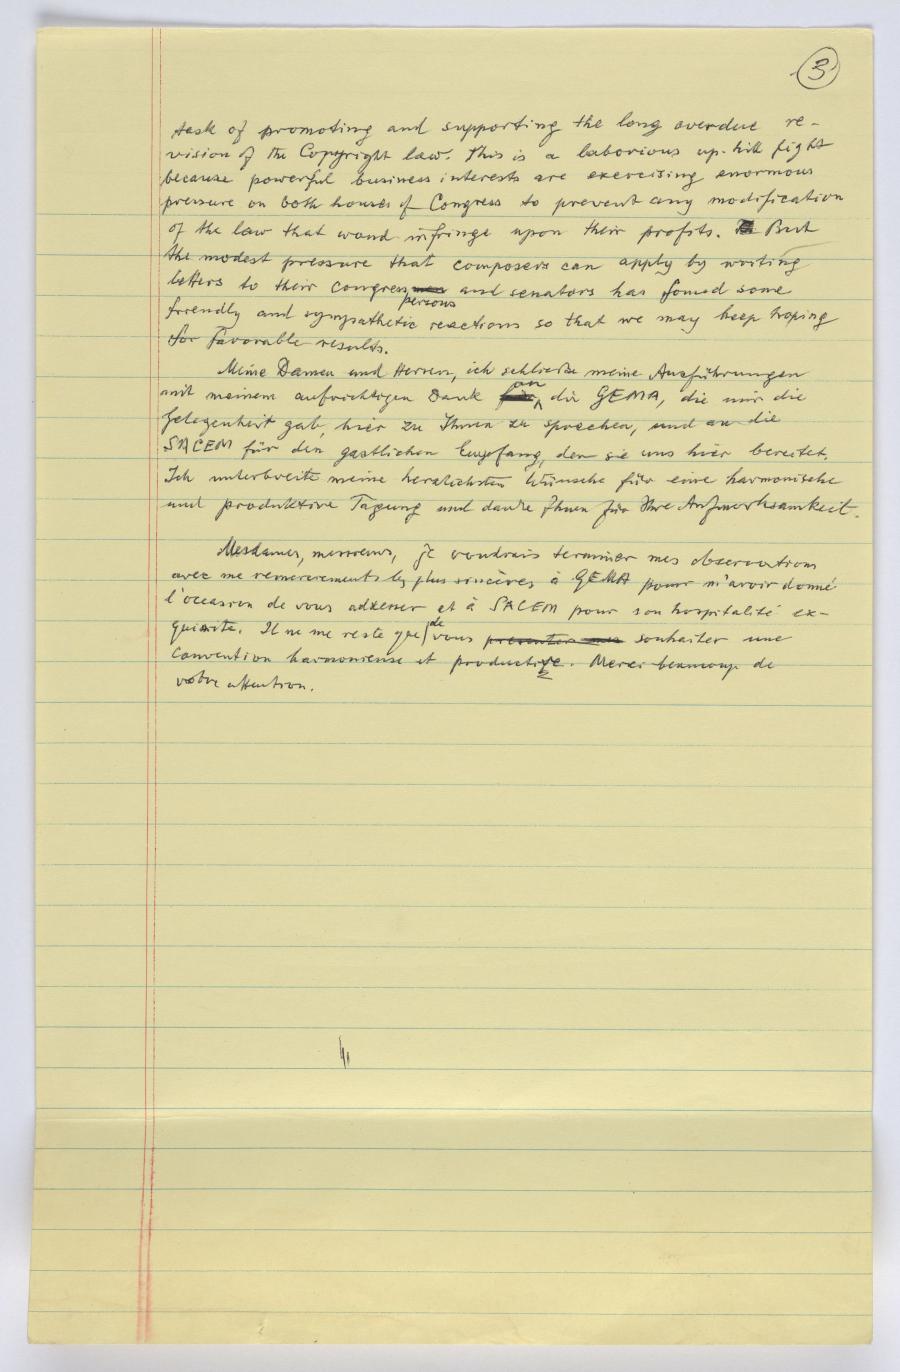 3
task of promoting and supporting the long overdue re-
vision of the Copyright law. This is a laborious up-hill fight
because powerful business interests are exercising enormous
pressure on both houses of Congress to prevent any modification
of the law that woud infringe upon their profits. But
the modest pressure that composers can apply by writing
letters to their Congress persons and senators has fomed some
friendly and sympathetic reactions so that we may keep hoping
for favorable results.
Meine Damen und Herren, ich schließe meine Ausführungen
mit meinem aufrichtigen Dank an die GEMA, die mir die
Gelegenheit gab, hier zu Ihnen zu sprechen, und an die
SACEM für den gastlichen Empfang, den sie uns hier bereitet.
Ich unterbreite meine herzlichsten Wünsche für eine harmonische
und produktive Tagung und danke Ihnen für Ihre Aufmerksamkeit.
Mesdames, messieurs, je voudrais terminer mes observations
avec me remerciements les plus sincères à GEMA pour m'avoir donné
l'occasion de vous adresser et à SACEM pour son hospitalité ex-
quisite. Il ne me reste que de vous presenter mes souhaiter une
convention harmonieuse et productive. Merci beaucoup de
votre attention.